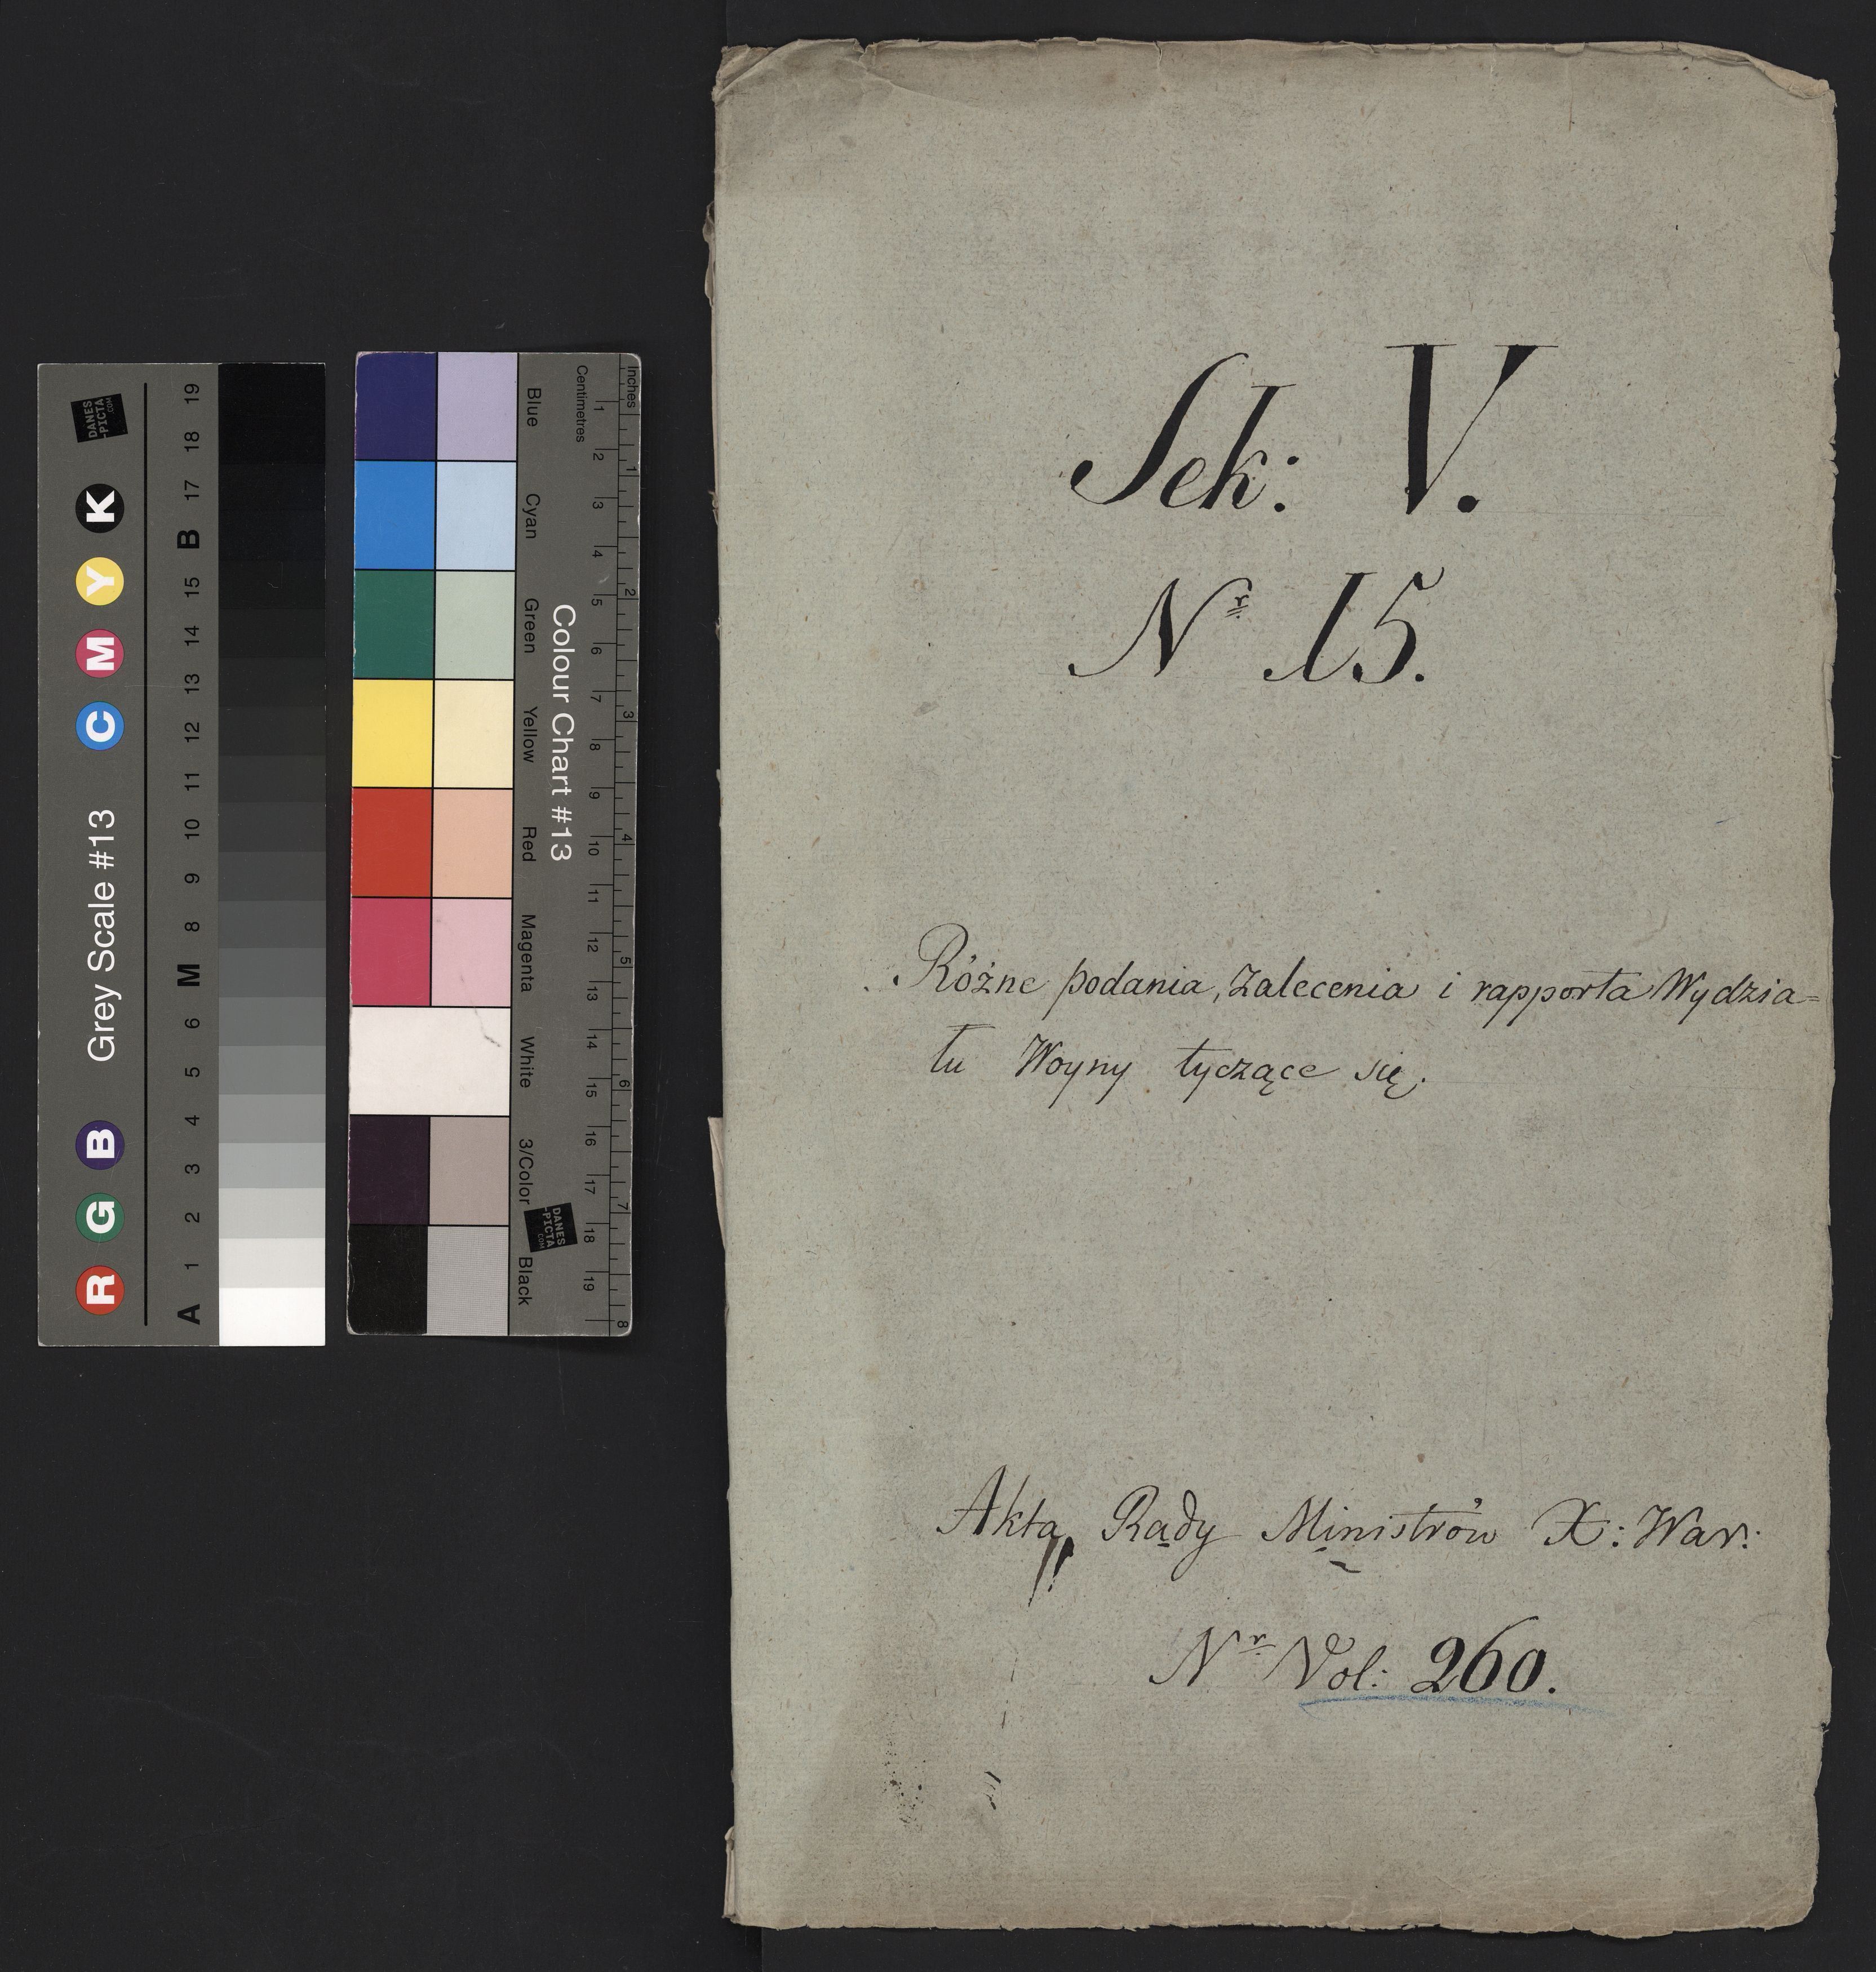 Sek: V.
Nr. 15.
Różne podania, zalecenia i rapporta Wydzia=
łu Woyny tyczące się.
Akta Rady Ministrów X: War:
Nr. Vol: 260.
Grey Scale #13
R G B C M Y K
A 1 2 3 4 5 6 M 8 9 10 11 12 13 14 15 B 17 18 19
DANES
-PICTA
.COM
Colour Chart #13
Blue Cyan Green Yellow Red Magenta White 3/Color Black
Centimetres 1 2 3 4 5 6 7 8 9 10 11 12 13 14 15 16 17 18 19
Inches 1 2 3 4 5 6 7 8
DANES
-PICTA
.COM